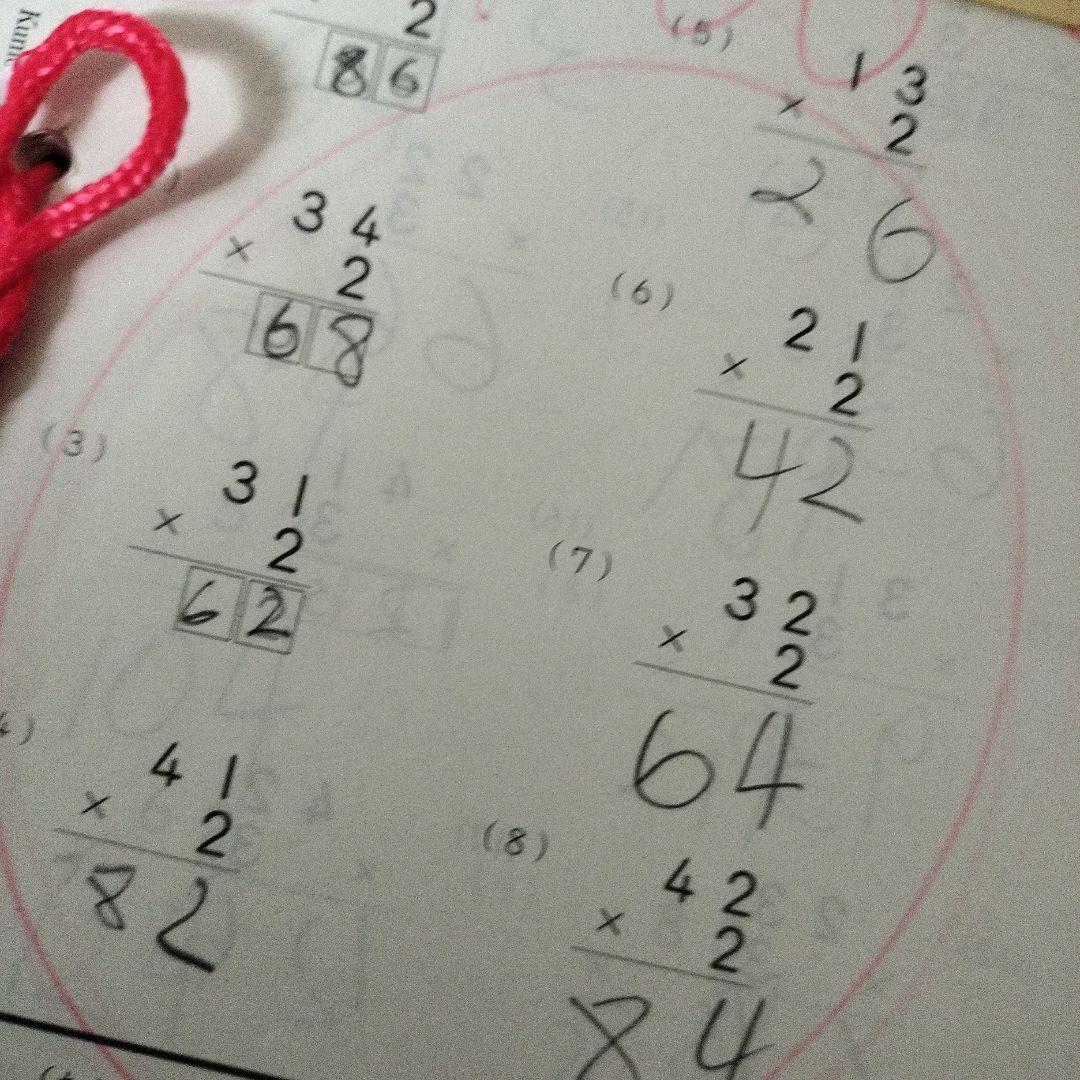 2
86
34
× 2
68
(3)
31
× 2
62
41
× 2
82
(5)
13
× 2
26
(6)
21
× 2
42
(7)
32
× 2
64
(8)
42
× 2
84